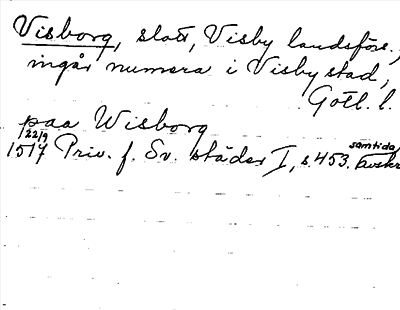 Visborg, slott, Visby landsförs.,
ingår numera i Visby stad,
Gotl. l.
paa Wisborg
22/9
1517 Priv. f. Sv. städer I, s. 453. samtida avskr